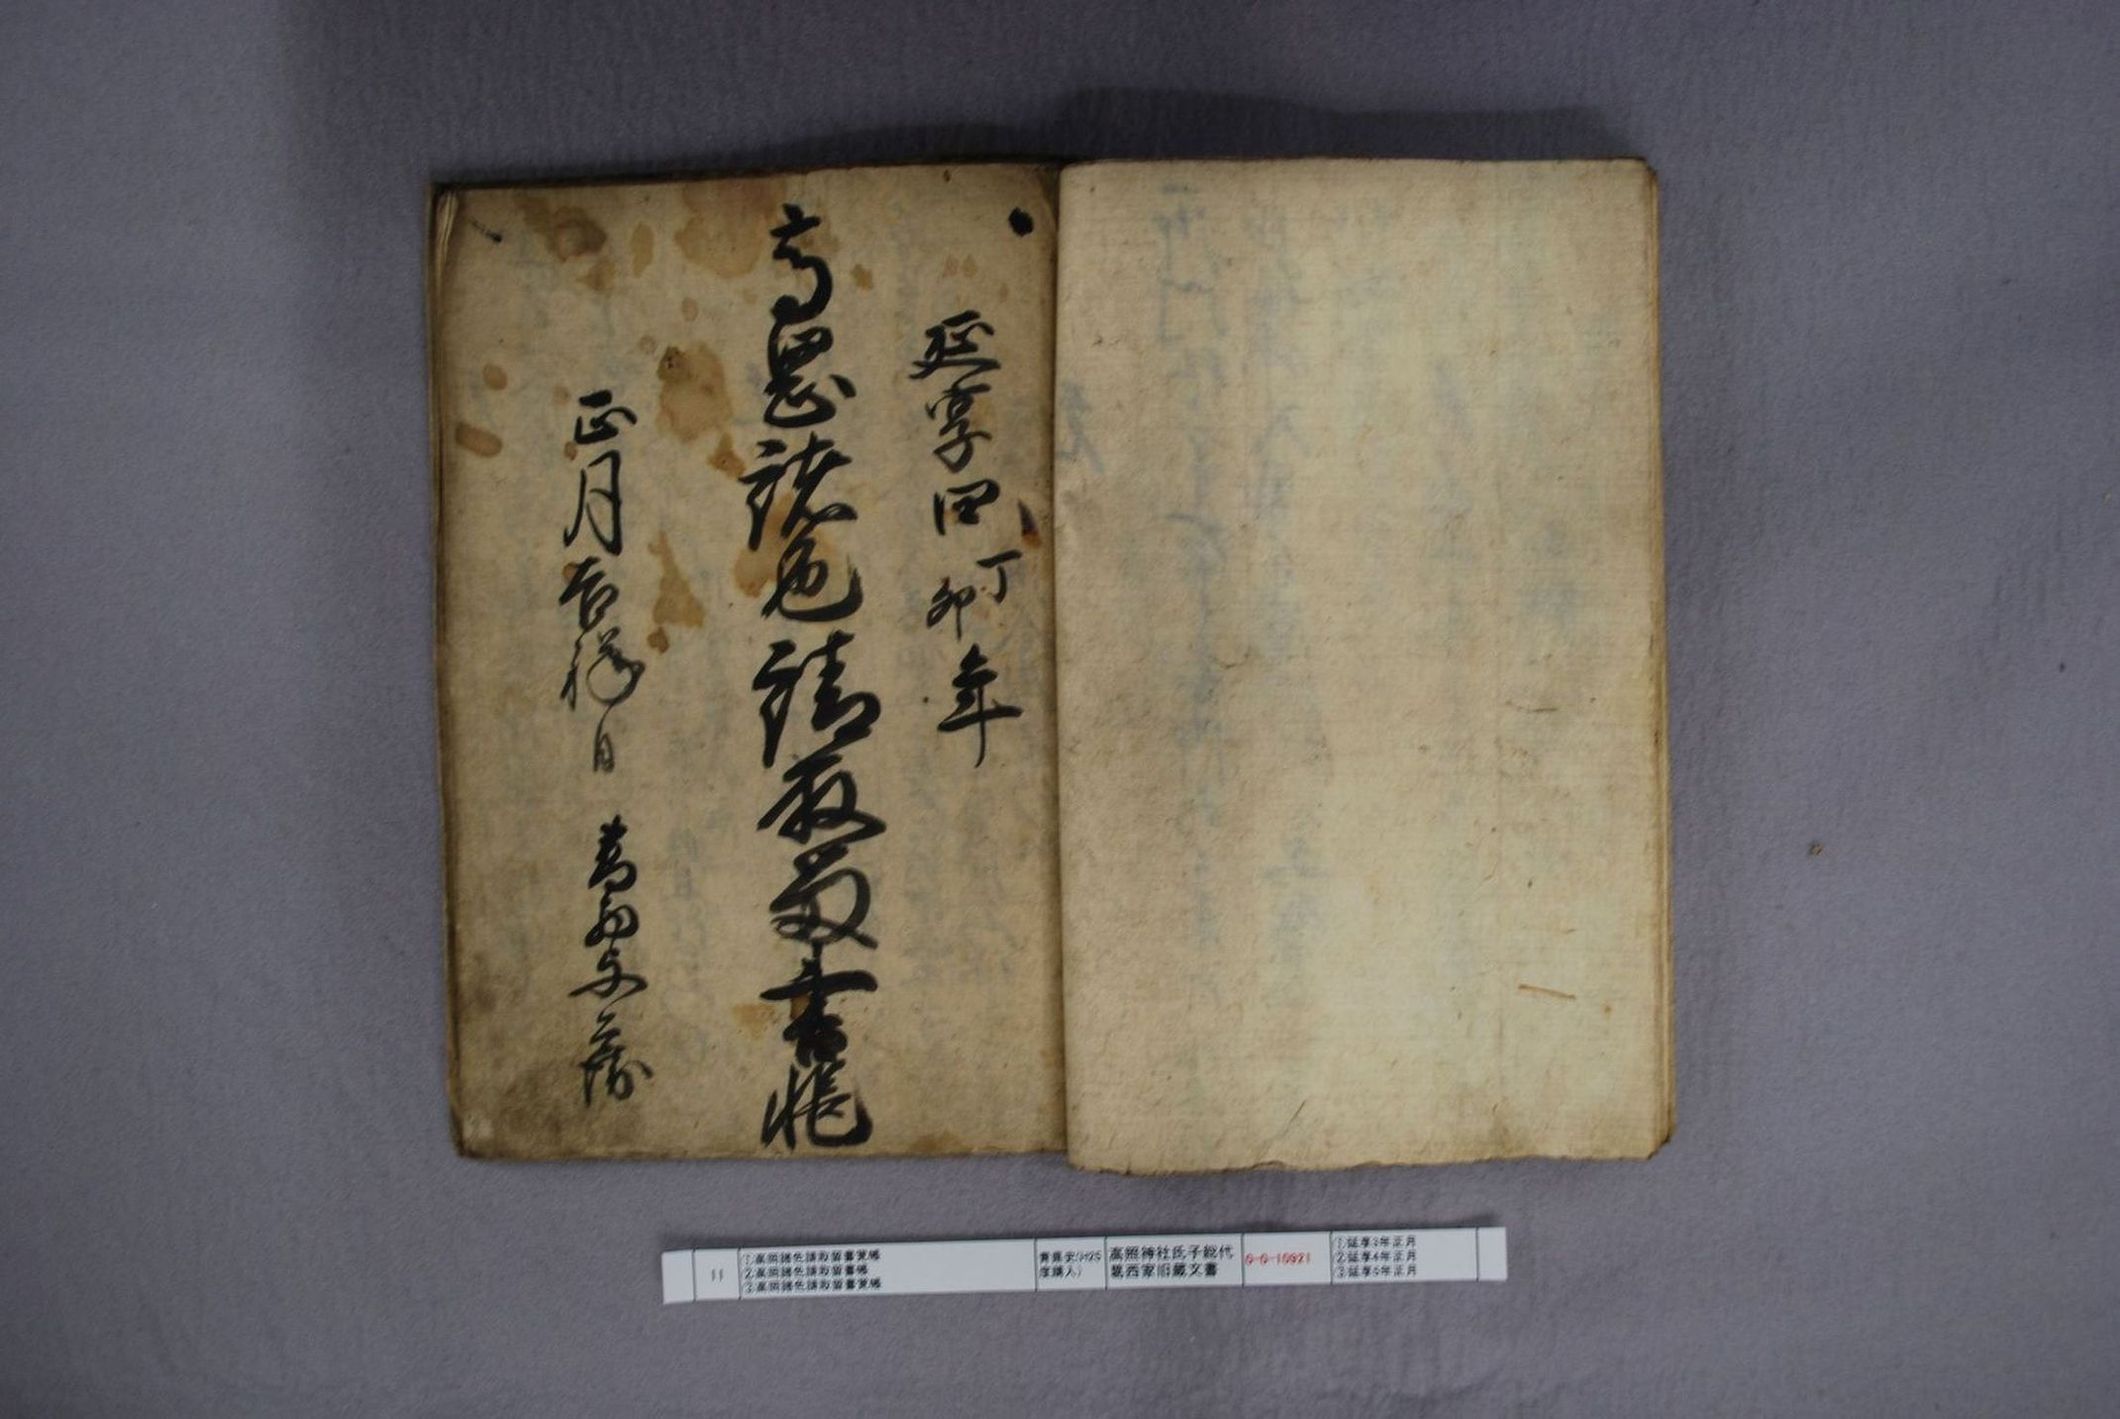 延享四丁卯年
高照諸色請取留書帳
正月吉祥日
11
①高照諸色請取留書覚帳
②高照諸色請取留書帳
③高照諸色請取留書覚帳
高照神社氏子総代
葛西家旧蔵文書
0-0-10921
①延享3年正月
②延享4年正月
③延享5年正月